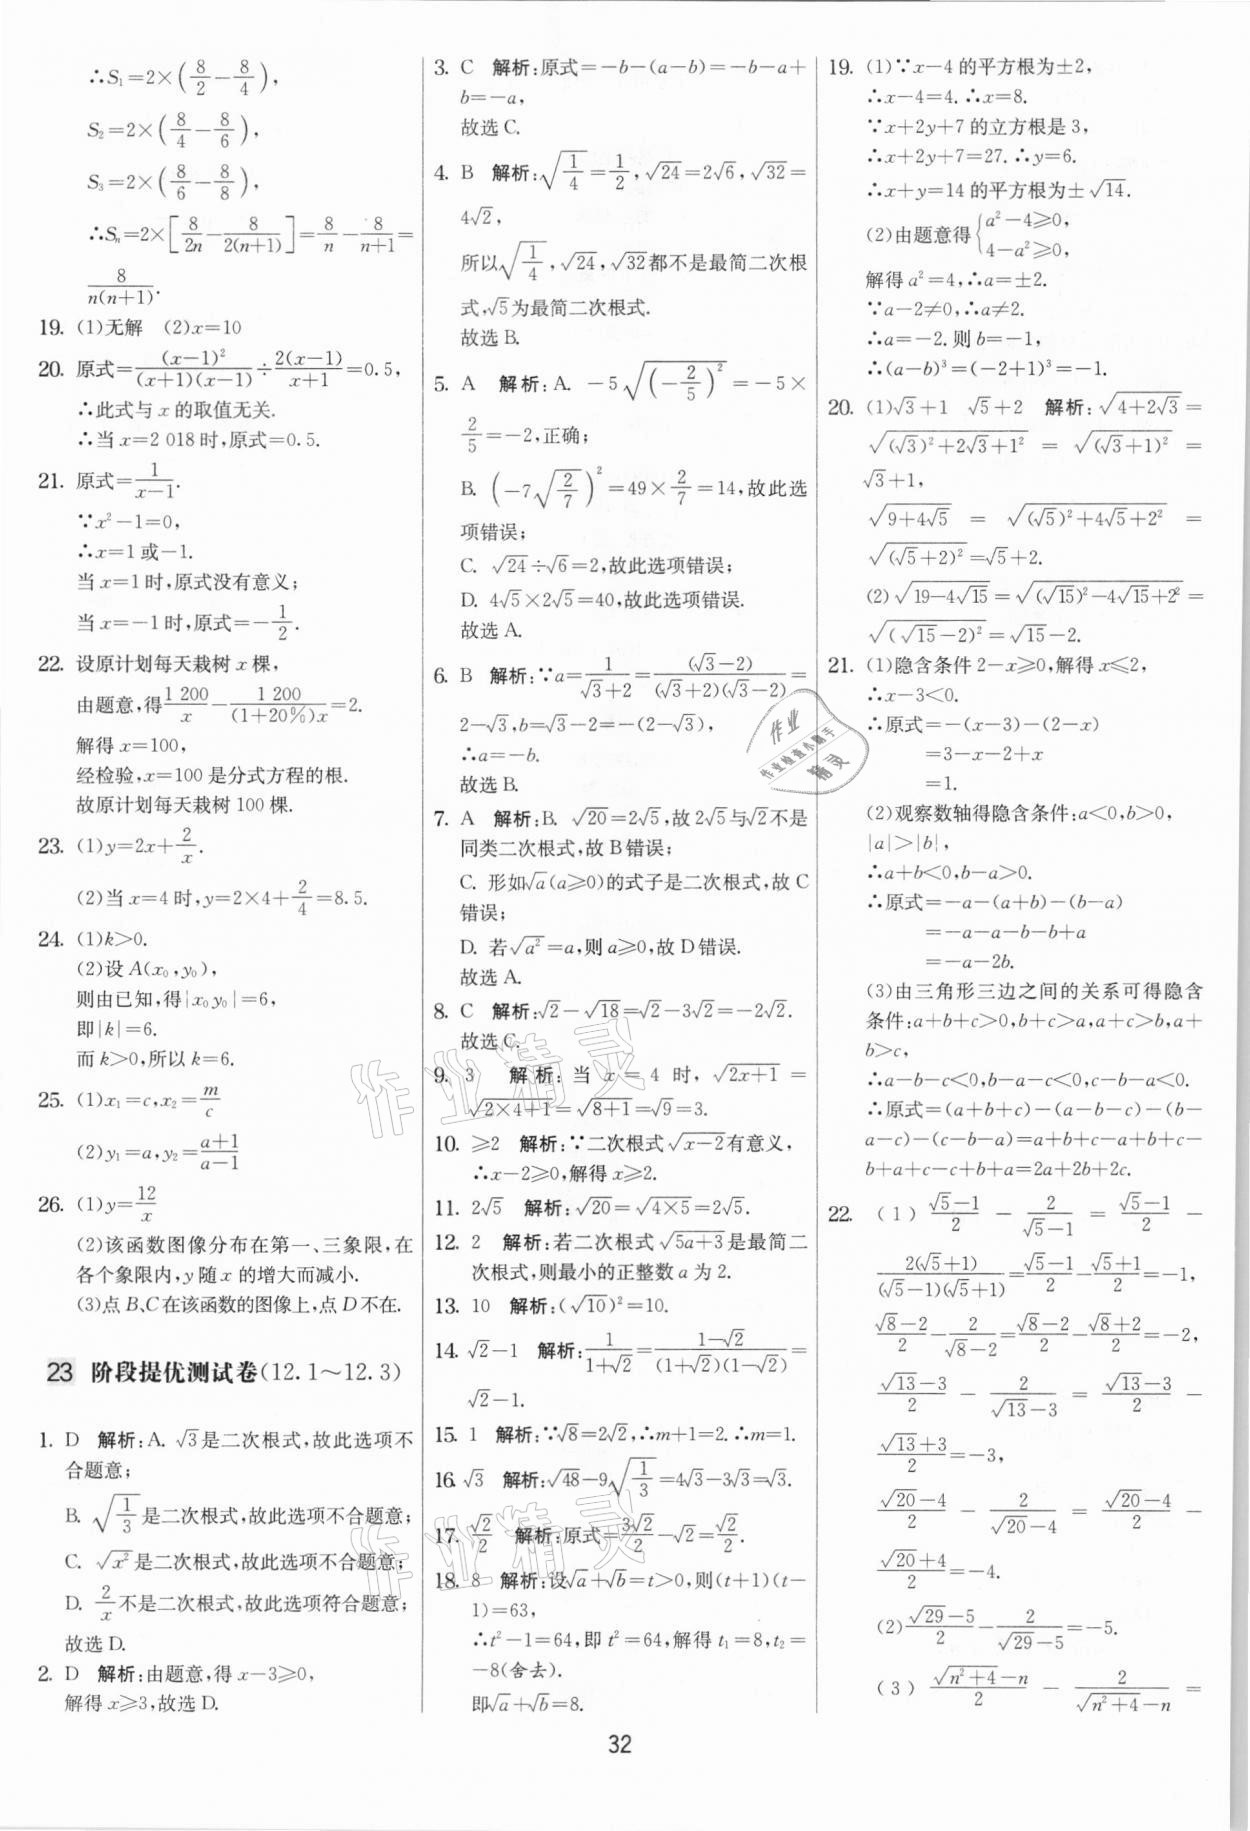 ∴S₁=2×(8/2-8/4),
S₂=2×(8/4-8/6),
S₃=2×(8/6-8/8),
∴Sₙ=2×[8/2n-8/2(n+1)]=8/n-8/n+1=
8/n(n+1).
19. (1)无解 (2)x=10
20. 原式=(x-1)²/(x+1)(x-1)÷2(x-1)/x+1=0.5,
∴此式与 x 的取值无关.
∴当 x=2 018 时,原式=0.5.
21. 原式=1/x-1.
∵x²-1=0,
∴x=1 或-1.
当 x=1 时,原式没有意义;
当 x=-1 时,原式=-1/2.
22. 设原计划每天栽树 x 棵,
由题意,得1 200/x-1 200/(1+20%)x=2.
解得 x=100,
经检验,x=100 是分式方程的根.
故原计划每天栽树 100 棵.
23. (1)y=2x+2/x.
(2)当 x=4 时,y=2×4+2/4=8.5.
24. (1)k>0.
(2)设 A(x₀,y₀),
则由已知,得|x₀y₀|=6,
即|k|=6.
而 k>0,所以 k=6.
25. (1)x₁=c,x₂=m/c
(2)y₁=a,y₂=a+1/a-1
26. (1)y=12/x
(2)该函数图像分布在第一、三象限,在
各个象限内,y 随 x 的增大而减小.
(3)点 B、C 在该函数的图像上,点 D 不在.
23 阶段提优测试卷(12.1～12.3)
1. D 解析:A. √3是二次根式,故此选项不
合题意;
B. √(1/3)是二次根式,故此选项不合题意;
C. √x²是二次根式,故此选项不合题意;
D. 2/x不是二次根式,故此选项符合题意;
故选 D.
2. D 解析:由题意,得 x-3≥0,
解得 x≥3,故选 D.
3. C 解析:原式=-b-(a-b)=-b-a+
b=-a,
故选 C.
4. B 解析:√(1/4)=1/2,√24=2√6,√32=
4√2,
所以√(1/4),√24,√32都不是最简二次根
式,√5为最简二次根式.
故选 B.
5. A 解析:A. -5√((-2/5)²)=-5×
2/5=-2,正确;
B. (-7√(2/7))²=49×2/7=14,故此选
项错误;
C. √24÷√6=2,故此选项错误;
D. 4√5×2√5=40,故此选项错误.
故选 A.
6. B 解析:∵a=1/√3+2=(√3-2)/(√3+2)(√3-2)=
2-√3,b=√3-2=-(2-√3),
∴a=-b.
故选 B.
7. A 解析:B. √20=2√5,故 2√5与√2不是
同类二次根式,故 B 错误;
C. 形如√a(a≥0)的式子是二次根式,故 C
错误;
D. 若√a²=a,则 a≥0,故 D 错误.
故选 A.
8. C 解析:√2-√18=√2-3√2=-2√2.
故选 C.
9. 3 解析:当 x=4 时,√(2x+1)=
√(2×4+1)=√(8+1)=√9=3.
10. ≥2 解析:∵二次根式√(x-2)有意义,
∴x-2≥0,解得 x≥2.
11. 2√5 解析:√20=√(4×5)=2√5.
12. 2 解析:若二次根式√(5a+3)是最简二
次根式,则最小的正整数 a 为 2.
13. 10 解析:(√10)²=10.
14. √2-1 解析:1/1+√2=1-√2/(1+√2)(1-√2)=
√2-1.
15. 1 解析:∵√8=2√2,∴m+1=2.∴m=1.
16. √3 解析:√48-9√(1/3)=4√3-3√3=√3.
17. √2/2 解析:原式=3√2/2-√2=√2/2.
18. 8 解析:设√a+√b=t>0,则(t+1)(t-
1)=63,
∴t²-1=64,即 t²=64,解得 t₁=8,t₂=
-8(舍去).
即√a+√b=8.
19. (1)∵x-4 的平方根为±2,
∴x-4=4.∴x=8.
∵x+2y+7 的立方根是 3,
∴x+2y+7=27.∴y=6.
∴x+y=14 的平方根为±√14.
(2)由题意得{a²-4≥0,
4-a²≥0,
解得 a²=4,∴a=±2.
∵a-2≠0,∴a≠2.
∴a=-2.则 b=-1,
∴(a-b)³=(-2+1)³=-1.
20. (1)√3+1 √5+2 解析:√(4+2√3)=
√((√3)²+2√3+1²)=√((√3+1)²)=
√3+1,
√(9+4√5)=√((√5)²+4√5+2²)=
√((√5+2)²)=√5+2.
(2)√(19-4√15)=√((√15)²-4√15+2²)=
√((√15-2)²)=√15-2.
21. (1)隐含条件 2-x≥0,解得 x≤2,
∴x-3<0.
∴原式=-(x-3)-(2-x)
=3-x-2+x
=1.
(2)观察数轴得隐含条件:a<0,b>0,
|a|>|b|,
∴a+b<0,b-a>0.
∴原式=-a-(a+b)-(b-a)
=-a-a-b-b+a
=-a-2b.
(3)由三角形三边之间的关系可得隐含
条件:a+b+c>0,b+c>a,a+c>b,a+
b>c,
∴a-b-c<0,b-a-c<0,c-b-a<0.
∴原式=(a+b+c)-(a-b-c)-(b-
a-c)-(c-b-a)=a+b+c-a+b+c-
b+a+c-c+b+a=2a+2b+2c.
22. (1)√5-1/2-2/√5-1=√5-1/2-
2(√5+1)/(√5-1)(√5+1)=√5-1/2-√5+1/2=-1,
√8-2/2-2/√8-2=√8-2/2-√8+2/2=-2,
√13-3/2-2/√13-3=√13-3/2-
√13+3/2=-3,
√20-4/2-2/√20-4=√20-4/2-
√20+4/2=-4.
(2)√29-5/2-2/√29-5=-5.
(3)√(n²+4)-n/2-2/√(n²+4)-n=
32
作业
作业检查小助手
精灵
作业精灵
作业精灵